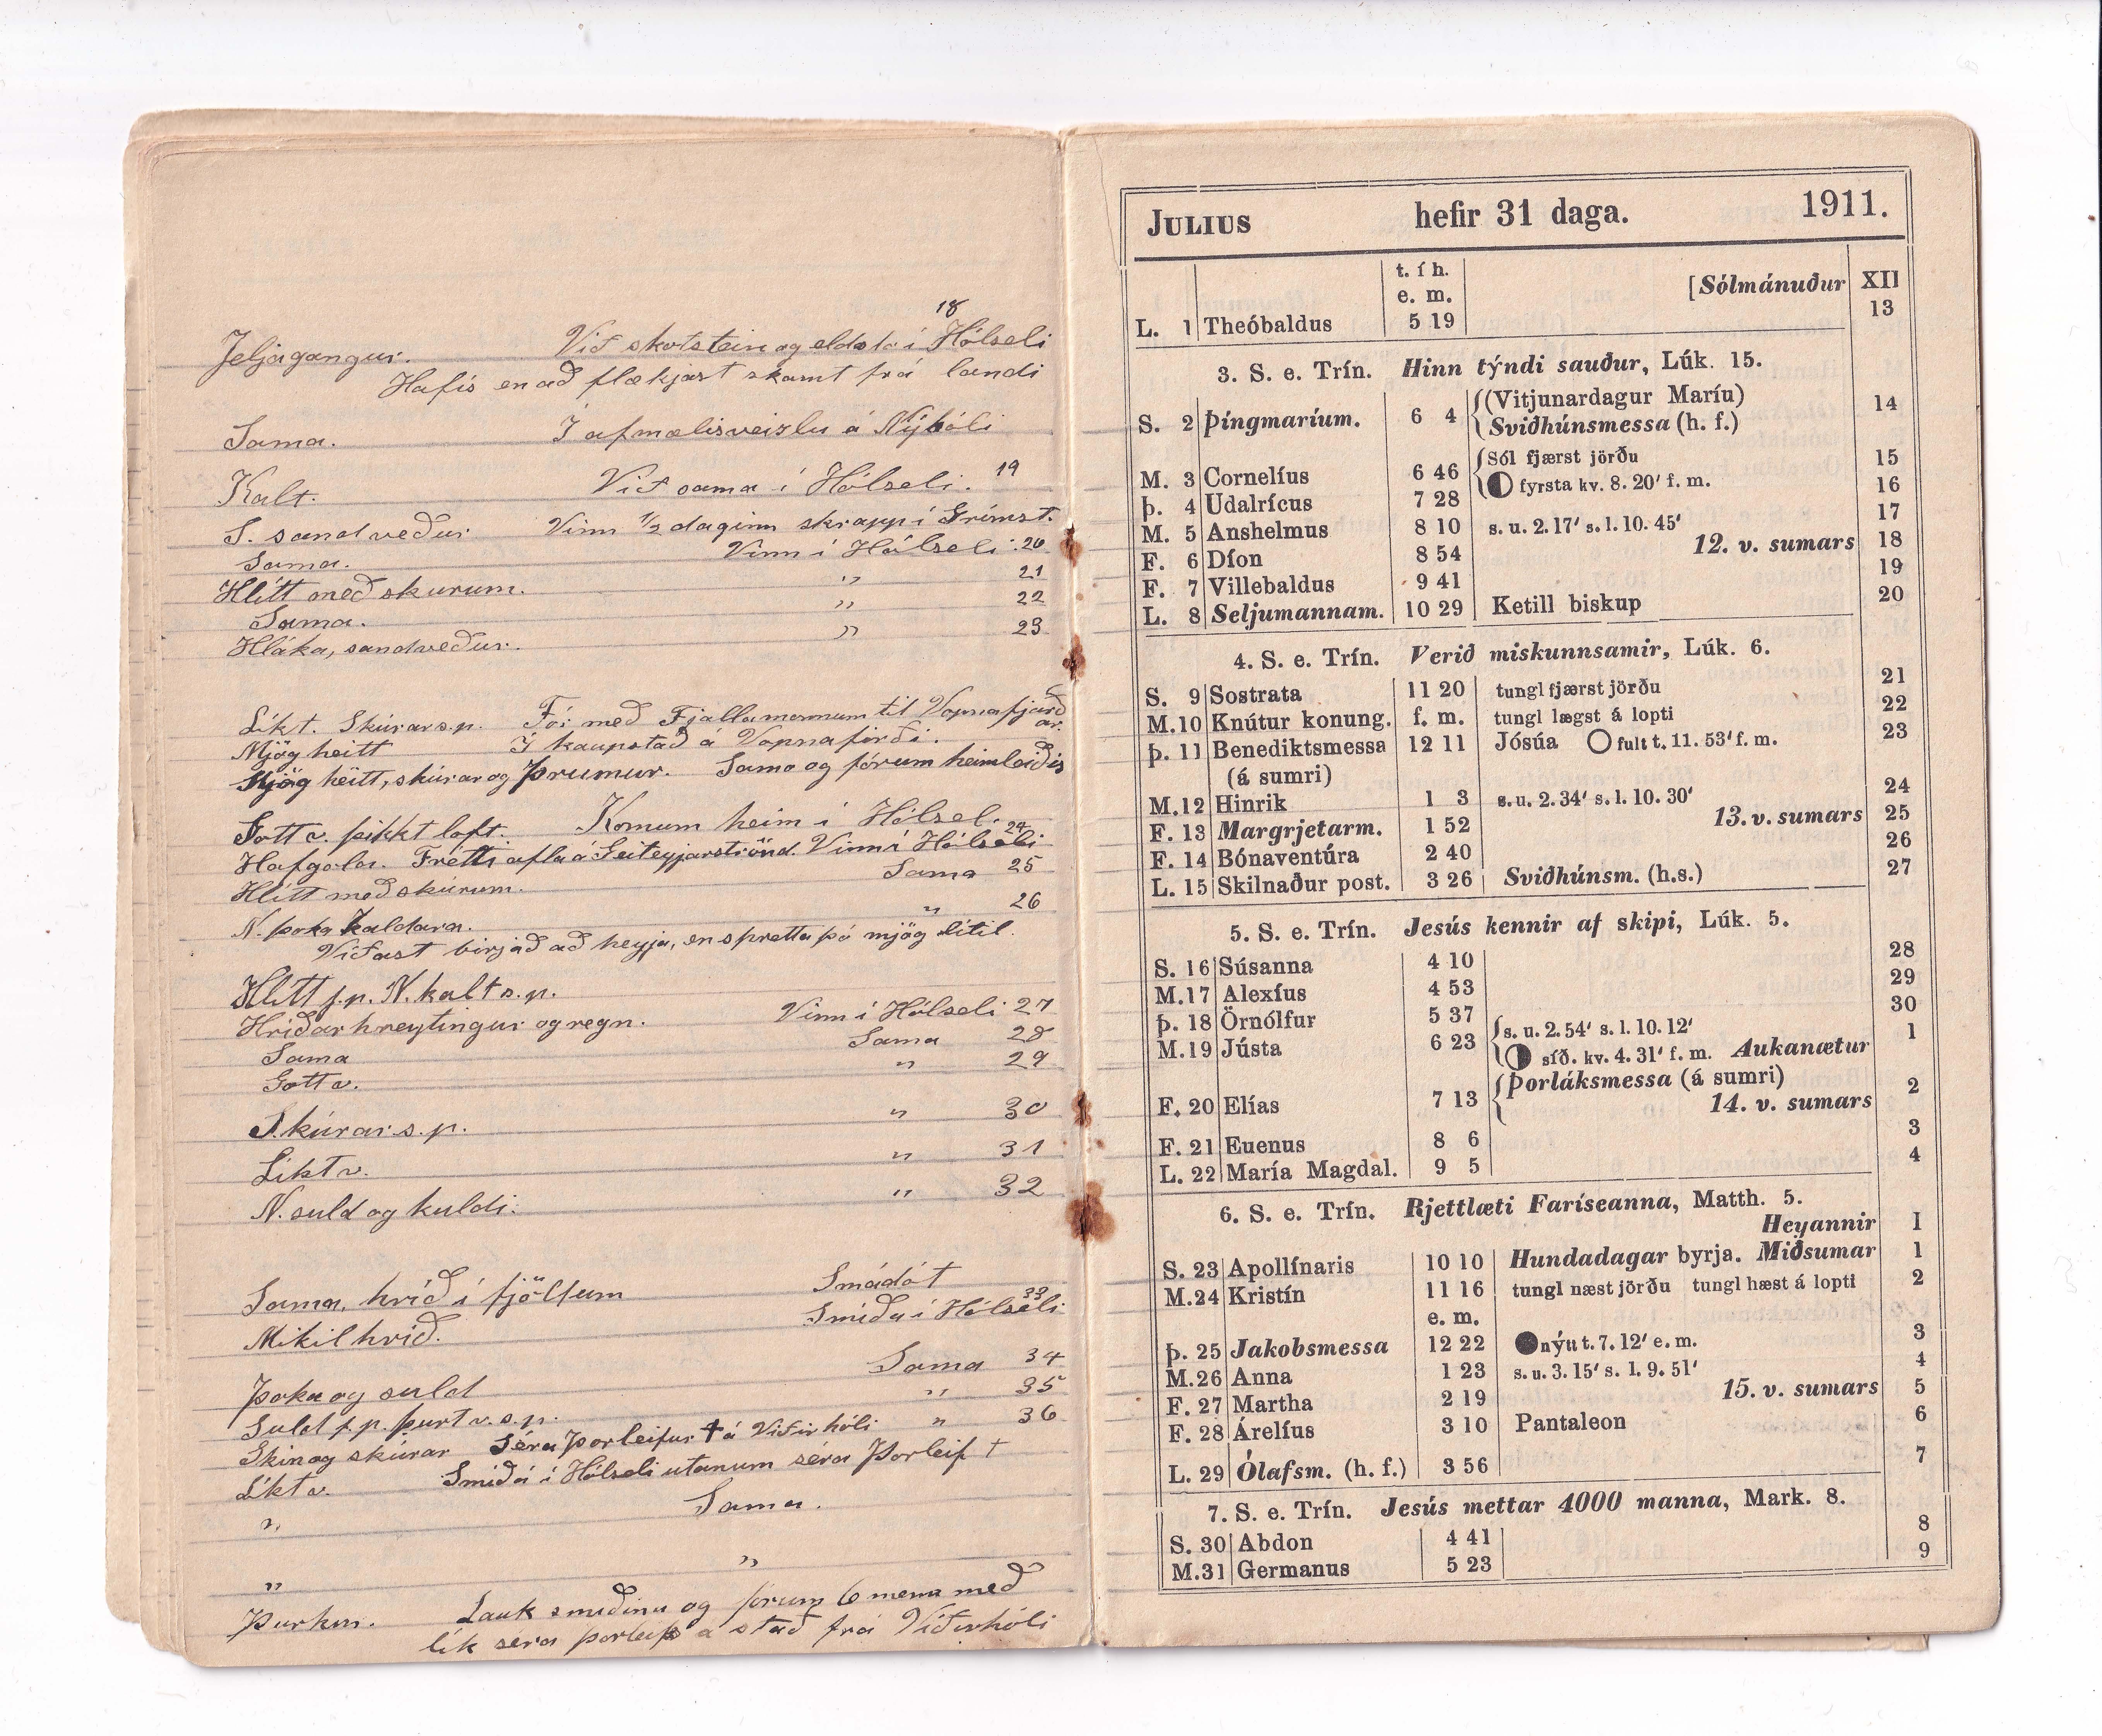 18
Jeljagangur. Við skotstein og eldstó í Hólseli
Hafís en að flækjast skamt frá landi
Sama. Í afmælisveizlu á Nýhóli
Kalt. Við sama í Hólseli. 19
S. sandveður Vinn 1/2 daginn skrapp í Grímst.
Sama. Vinn í Hólseli. 20
Hlítt með skurum. " 21
Sama. " 22
Hláka, sandveður. " 23
Líkt. Skúrar s.p. Fór með Fjallamönnum til Vopnafjarð
ar.
Mjög heitt Í kaupstað á Vopnafirði.
Mjög heitt, skúrar og Þrumur. Sama og fórum heimleiðis
Gott v. þikkt loft. Komum heim í Hólsel.
Hafgola. Frétti afla á Vinn í Hólseli 24
Hlítt með skúrum. Sama 25
N. þoka kaldara. " 26
Víðast birjað að heyja, en spretta þó mjög lítil.
Hlítt f.p. N. kalt s.p.
Hríðarhreytingur og regn. Vinn í Hólseli 27
Sama Sama 28
Gott v. " 29
Skúrar s.p. " 30
Líkt v. " 31
N. suld og kuldi. " 32
Sama, hríð í fjöllum Smádót
Mikil hríð. Smíða í Hólseli 33
Þoka og suld Sama 34
Suld f.p. þurt v. s.p. " 35
Skin og skúrar Séra Þorleifur † á Víðirhóli " 36
Líkt v. Smíða í Hólseli utanum séra Þorleif †
" Sama.
" "
Þurkur. Lauk smíðinu og fórum 6 menn með
lík séra Þorleifs a stað frá Víðirhóli
JULIUS hefir 31 daga. 1911.
t. í h. [Sólmánuður XII
e. m.
L. 1 Theóbaldus 5 19 13
3. S. e. Trín. Hinn týndi sauður, Lúk. 15.
S. 2 Þíngmaríum. 6 4 (Vitjunardagur Maríu) 14
Sviðhúnsmessa (h. f.)
M. 3 Cornelíus 6 46 Sól fjærst jörðu 15
Þ. 4 Udalrícus 7 28 fyrsta kv. 8. 20' f. m. 16
M. 5 Anshelmus 8 10 s. u. 2. 17' s. l. 10. 45' 17
F. 6 Díon 8 54 12. v. sumars 18
F. 7 Villebaldus 9 41 19
L. 8 Seljumannam. 10 29 Ketill biskup 20
4. S. e. Trín. Verið miskunnsamir, Lúk. 6.
S. 9 Sostrata 11 20 tungl fjærst jörðu 21
M. 10 Knútur konung. f. m. tungl lægst á lopti 22
Þ. 11 Benediktsmessa 12 11 Jósúa fult t. 11. 53' f. m. 23
(á sumri)
M. 12 Hinrik 1 3 s. u. 2. 34' s. l. 10. 30' 24
F. 13 Margrjetarm. 1 52 13. v. sumars 25
F. 14 Bónaventúra 2 40 26
L. 15 Skilnaður post. 3 26 Sviðhúnsm. (h.s.) 27
5. S. e. Trín. Jesús kennir af skipi, Lúk. 5.
S. 16 Súsanna 4 10 28
M. 17 Alexíus 4 53 29
Þ. 18 Örnólfur 5 37 30
M. 19 Jústa 6 23 s. u. 2. 54' s. l. 10. 12' 1
síð. kv. 4. 31' f. m. Aukanætur
F. 20 Elías 7 13 Þorláksmessa (á sumri) 2
14. v. sumars
F. 21 Euenus 8 6 3
L. 22 María Magdal. 9 5 4
6. S. e. Trín. Rjettlæti Faríseanna, Matth. 5.
Heyannir I
S. 23 Apollínaris 10 10 Hundadagar byrja. Miðsumar 1
M. 24 Kristín 11 16 tungl næst jörðu tungl hæst á lopti 2
e. m.
Þ. 25 Jakobsmessa 12 22 nýtt t. 7. 12' e. m. 3
M. 26 Anna 1 23 s. u. 3. 15' s. l. 9. 51' 4
F. 27 Martha 2 19 15. v. sumars 5
F. 28 Árelíus 3 10 Pantaleon 6
L. 29 Ólafsm. (h. f.) 3 56 7
7. S. e. Trín. Jesús mettar 4000 manna, Mark. 8.
S. 30 Abdon 4 41 8
M. 31 Germanus 5 23 9